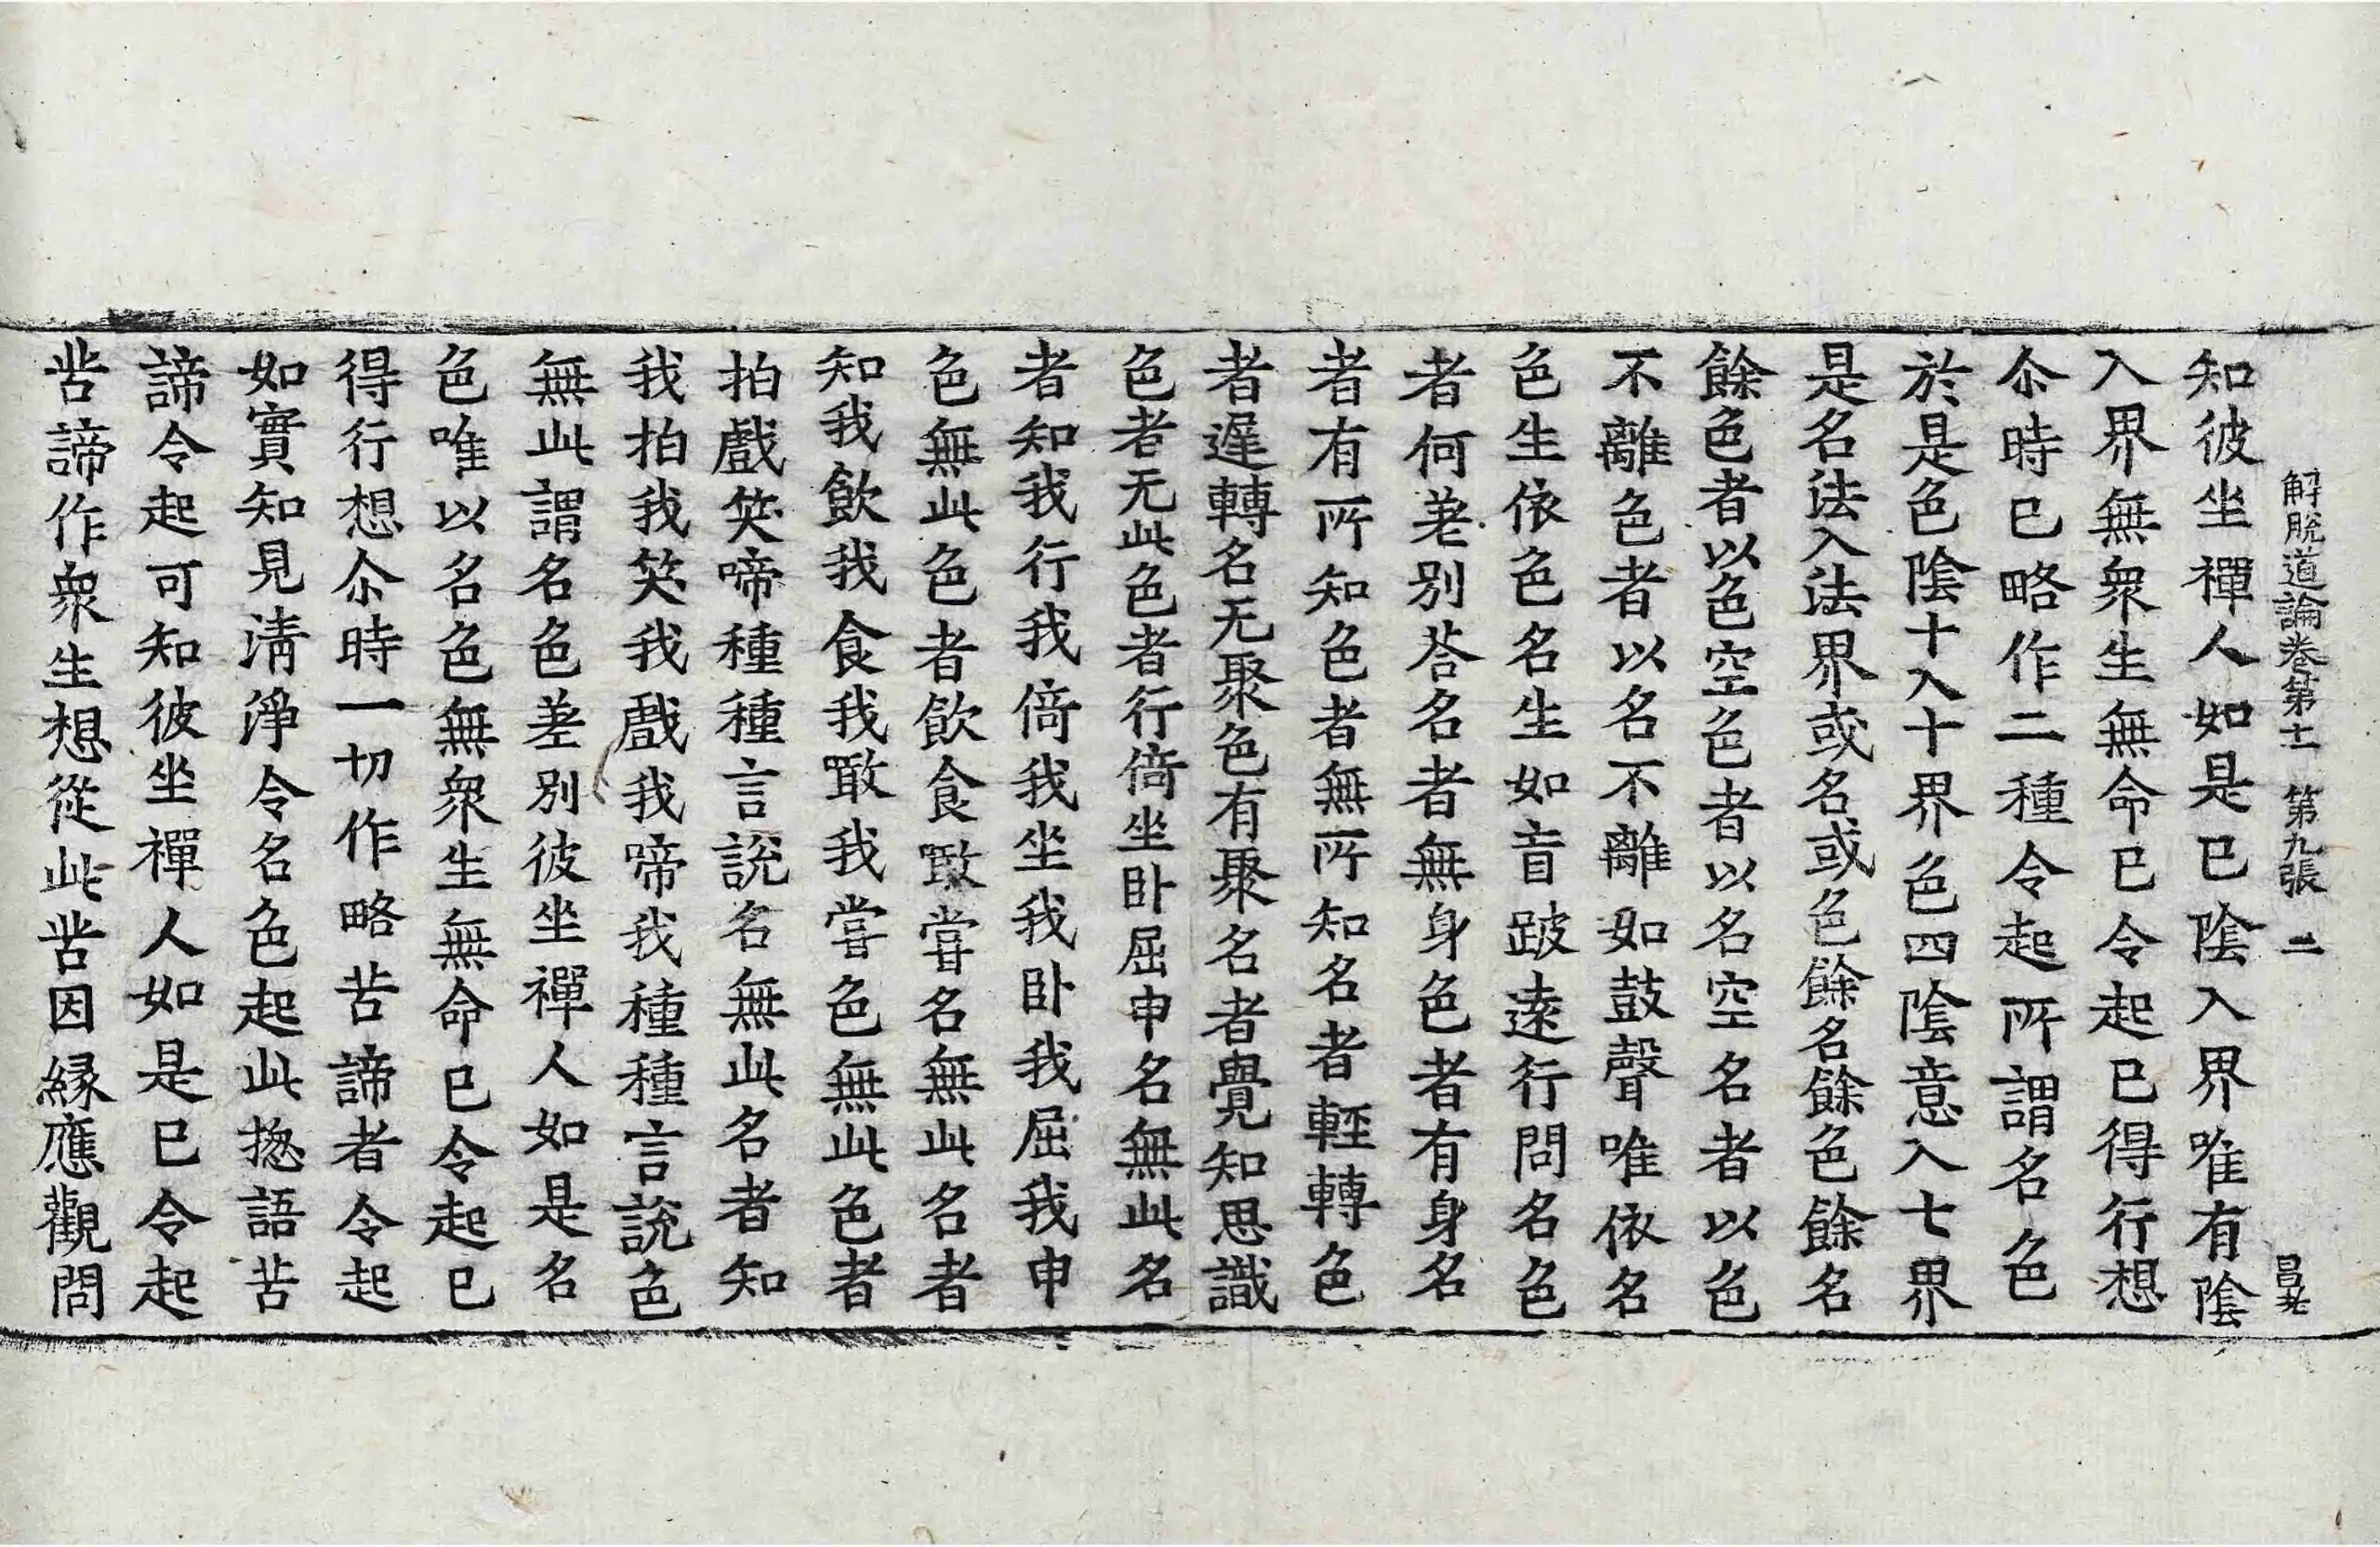 解脫道論卷第十一　第九張　二
知彼坐禪人如是已陰入界唯有陰
入界無衆生無命已令起已得行想
尒時已略作二種令起所謂名色
於是色陰十入十界色四陰意入七界
是名法入法界或名或色餘名餘色餘名
餘色者以色空色者以名空名者以色
不離色者以名不離如鼓聲唯依名
色生依色名生如盲跛遠行問名色
者何差別荅名者無身色者有身名
者有所知色者無所知名者輕轉色
者遲轉名无聚色有聚名者覺知思識
色者无此色者行倚坐卧屈申名無此名
者知我行我倚我坐我卧我屈我申
色無此色者飲食噉嘗名無此名者
知我飲我食我噉我嘗色無此色者
拍戲笑啼種種言說名無此名者知
我拍我笑我戲我啼我種種言說色
無此謂名色差別彼坐禪人如是名
色唯以名色無衆生無命已令起已
得行想尒時一切作略苦諦者令起
如實知見淸淨令名色起此揔語苦
諦令起可知彼坐禪人如是已令起
苦諦作衆生想從此苦因緣應觀問